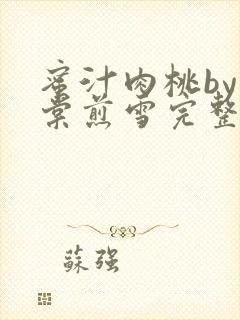 蜜汁肉桃by
棠煎雪完整
蘇強